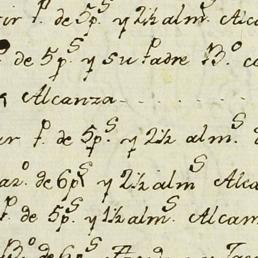 P. de 5p.s y 2½ alm.s Alca
de 5p.s y su Padre B.o
Alcanza
P. de 5p.s y 2½ alm.s
de 6p.s y 2½ alm.s Alca
P. de 5p.s y 1½ alm.s Alcam
B.o de 6p.s